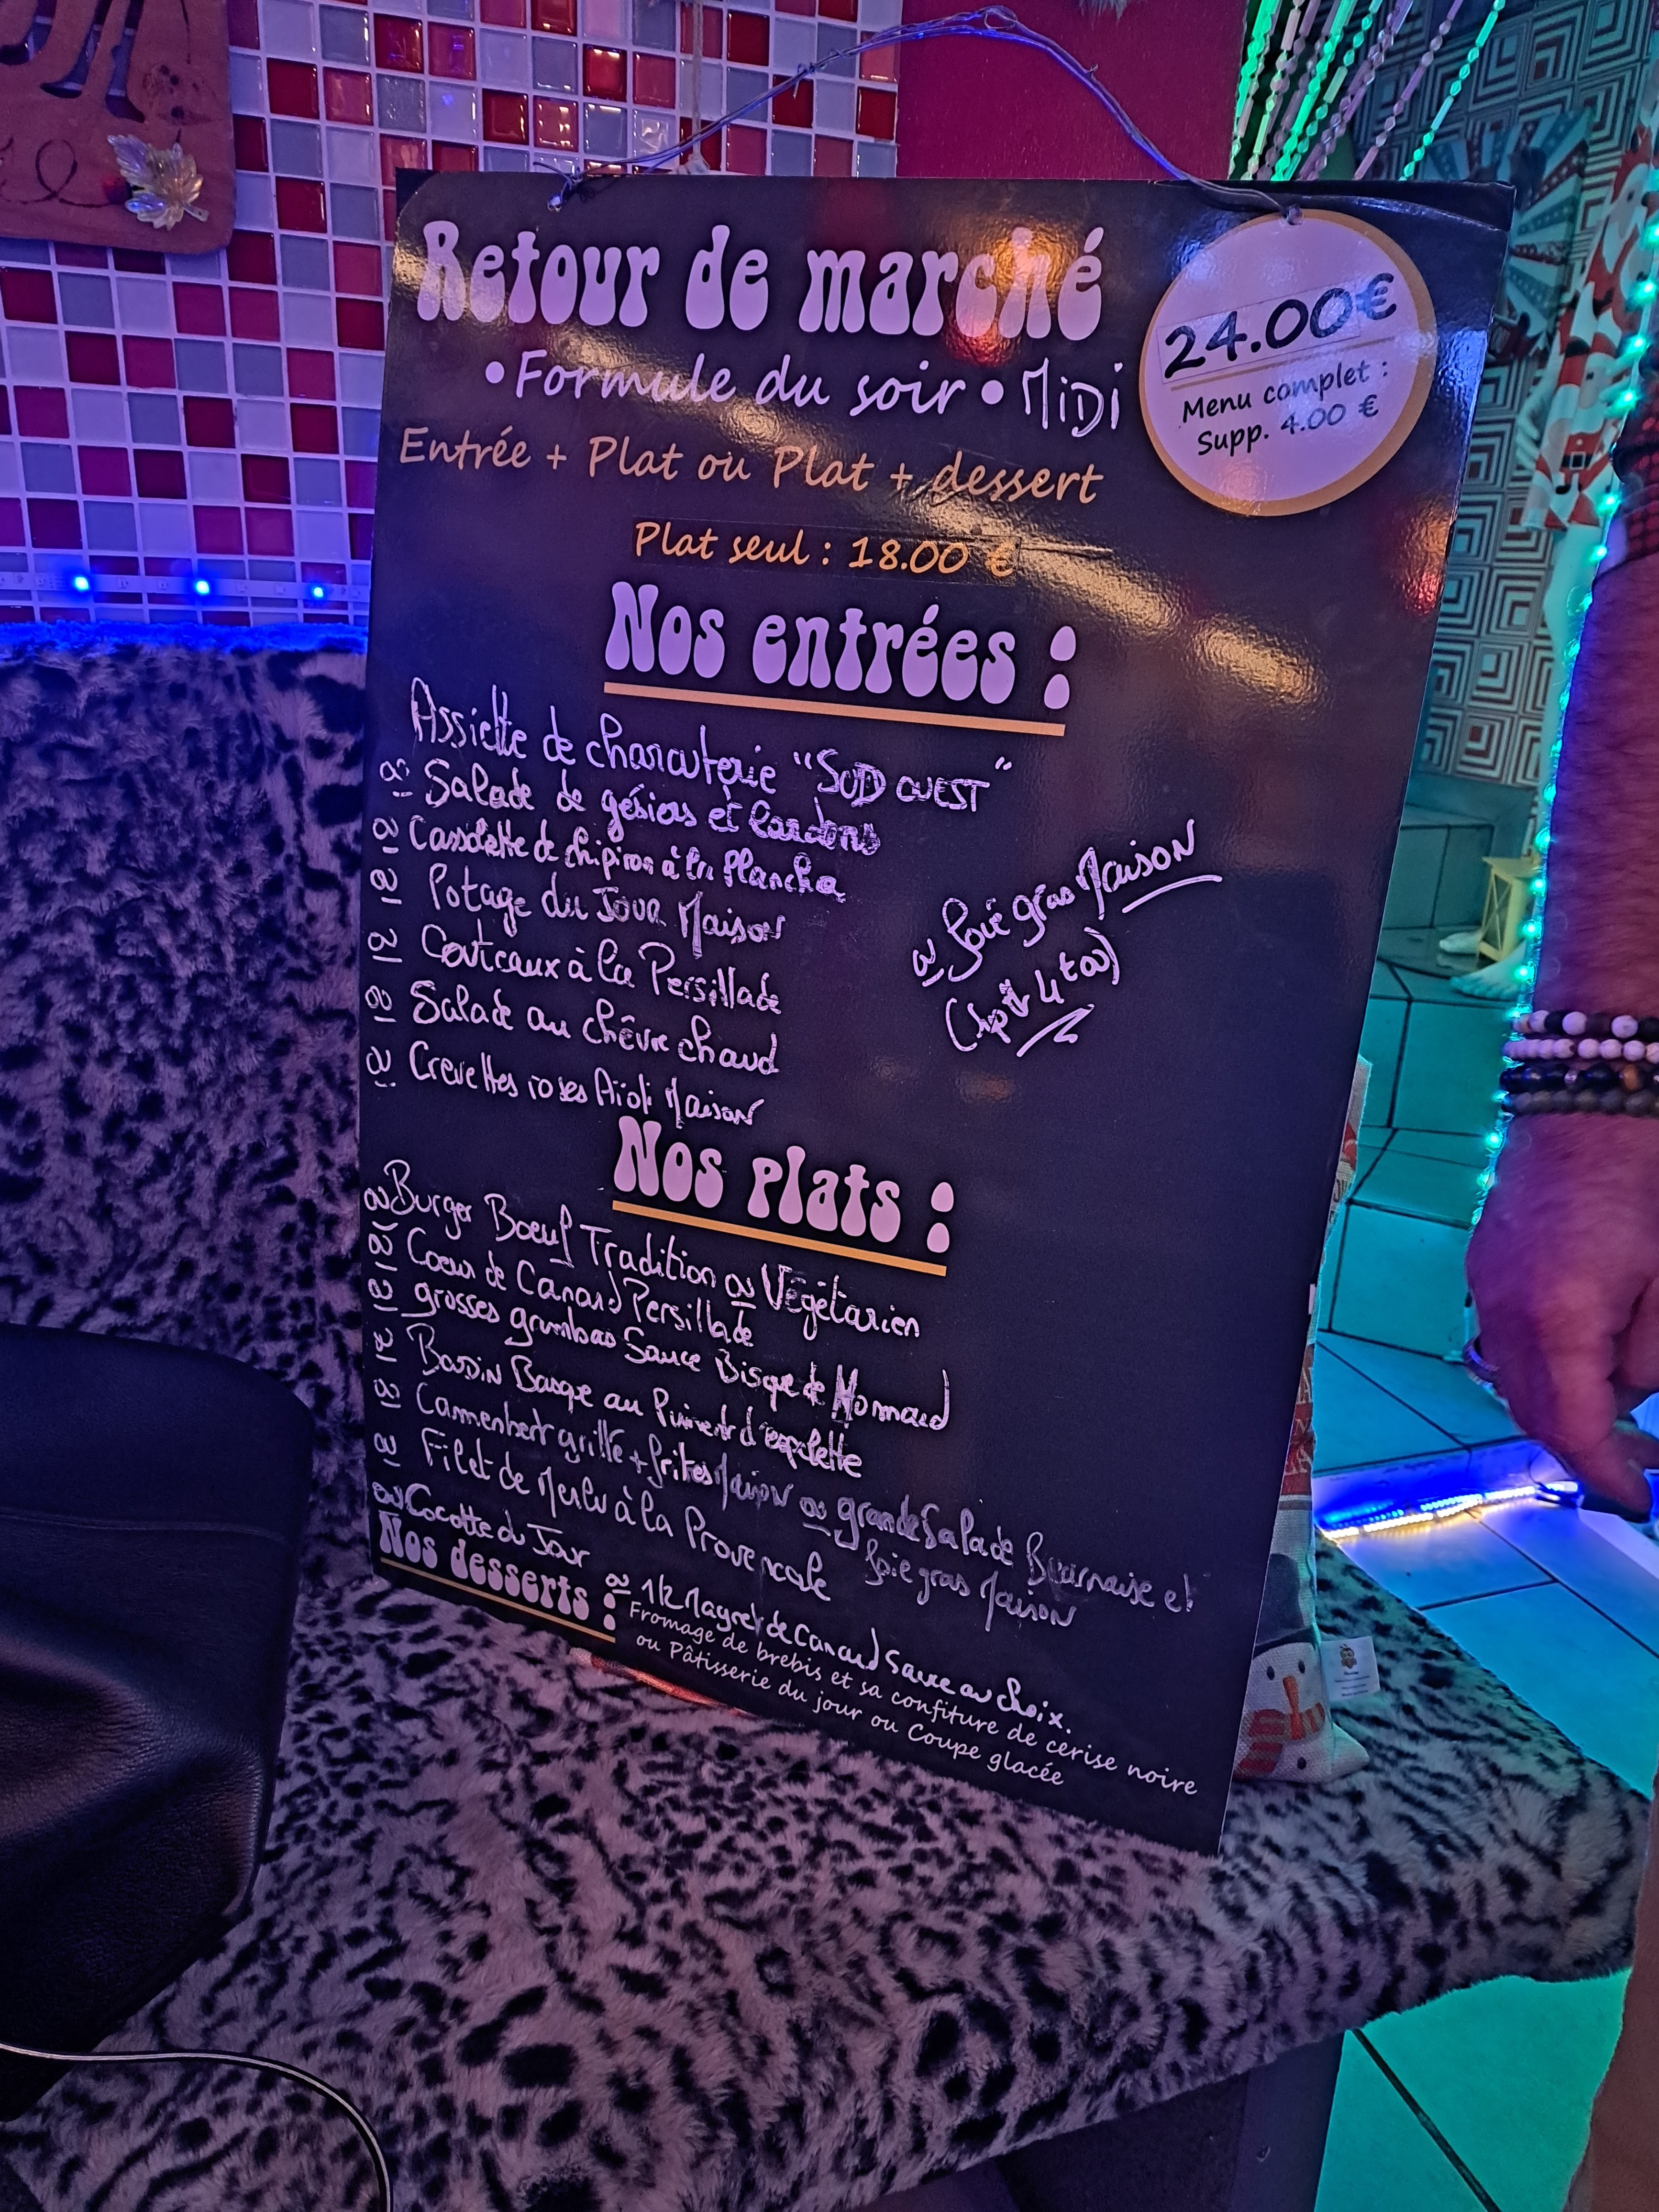 Retour de marché
• Formule du soir • MiDi
24.00€
Menu complet :
Supp. 4.00 €
Entrée + Plat ou Plat + dessert
Plat seul : 18.00 €
Nos entrées :
Assiette de charcuterie "SUD OUEST"
ou Salade de gésiers et lardons
ou Cassolette de chipiron à la Plancha
ou Potage du Jour Maison
ou Couteaux à la Persillade
ou Salade au chêvre chaud
ou Crevettes roses Aïoli Maison
ou foie gras Maison
(Spt 4 €00)
Nos plats :
ou Burger Boeuf Tradition ou Végétarien
ou Coeur de Canard Persillade
ou grosses gambas Sauce Bisque de Homard
ou Boudin Basque au Piment d'espelette
ou Camenbert grillé + frites Maison ou grande Salade Béarnaise et
foie gras Maison
ou Filet de Merlu à la Provençale
ou Cocotte du Jour
ou 1/2 Magret de Canard Sauce au choix.
Nos desserts :
Fromage de brebis et sa confiture de cerise noire
ou Pâtisserie du jour ou Coupe glacée